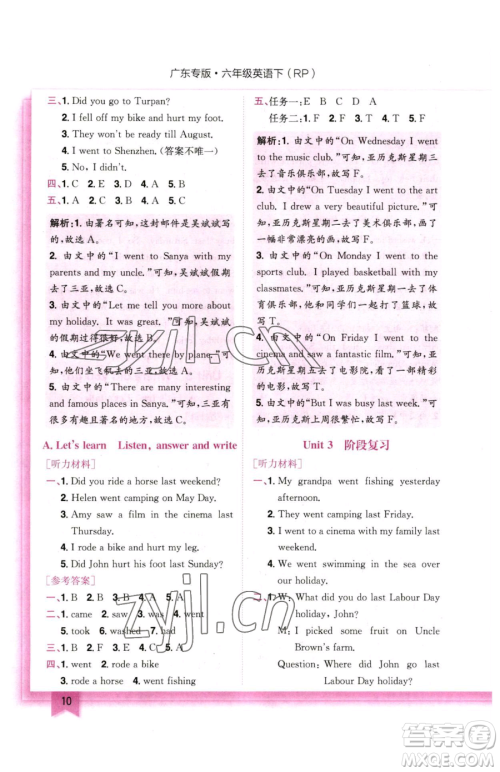 广东专版·六年级英语下（RP）
三、1. Did you go to Turpan?
2. I fell off my bike and hurt my foot.
3. They won't be ready till August.
4. I went to Shenzhen. (答案不唯一)
5. No, I didn't.
四、1. C 2. E 3. D 4. A 5. B
五、1. A 2. C 3. C 4. B 5. A
解析:1. 由署名可知,这封邮件是吴斌斌写的,故选 A。
2. 由文中的“I went to Sanya with my parents and my uncle.”可知,吴斌斌假期去了三亚,故选 C。
3. 由文中的“Let me tell you more about my holiday. It was great.”可知,吴斌斌的假期过得很好,故选 C。
4. 由文中的“We went there by plane.”可知,他们坐飞机去的三亚,故选 B。
5. 由文中的“There are many interesting and famous places in Sanya.”可知,三亚有许多有趣且著名的地方,故选 A。
A. Let's learn Listen, answer and write
[听力材料]
一、1. Did you ride a horse last weekend?
2. Helen went camping on May Day.
3. Amy saw a film in the cinema last Thursday.
4. I rode a bike and hurt my leg.
5. Did John hurt his foot last Labour Day holiday?
[参考答案]
一、1. B 2. B 3. A 4. A 5. B
二、1. came 2. saw 3. was 4. went
5. took 6. washed 7. drank
三、1. B 2. B 3. A 4. B 5. A
四、1. went 2. rode a bike
3. rode a horse 4. went fishing
10
五、任务一:E B C D A
任务二:1. F 2. F 3. T 4. T 5. F
解析:1. 由文中的“On Wednesday I went to the music club.”可知,亚历克斯星期三去了音乐俱乐部,故写 F。
2. 由文中的“On Tuesday I went to the art club. I drew a very beautiful picture.”可知,亚历克斯星期二去了美术俱乐部,画了一幅非常漂亮的画,故写 F。
3. 由文中的“On Monday I went to the sports club. I played basketball with my classmates.”可知,亚历克斯星期一去了体育俱乐部,和他的同学们打了篮球,故写 T。
4. 由文中的“On Friday I went to the cinema and saw a fantastic film.”可知,亚历克斯星期五去了电影院,看了一部精彩的电影,故写 T。
5. 由文中的“I was so busy last week.”可知,亚历克斯上周很忙,故写 F。
Unit 3 阶段复习
[听力材料]
一、1. My grandpa went fishing yesterday afternoon.
2. They went camping last Friday.
3. I went to the cinema with my family last weekend.
4. We went swimming in the sea over there.
5. I ate some fresh food on my holiday.
二、1. W: What did you do last Labour Day holiday, John?
M: I picked some fruit on Uncle Brown's farm.
Question: Where did John go last Labour Day holiday?
zyjl.cn
zyjl.cn
答案圈
MXQE.COM